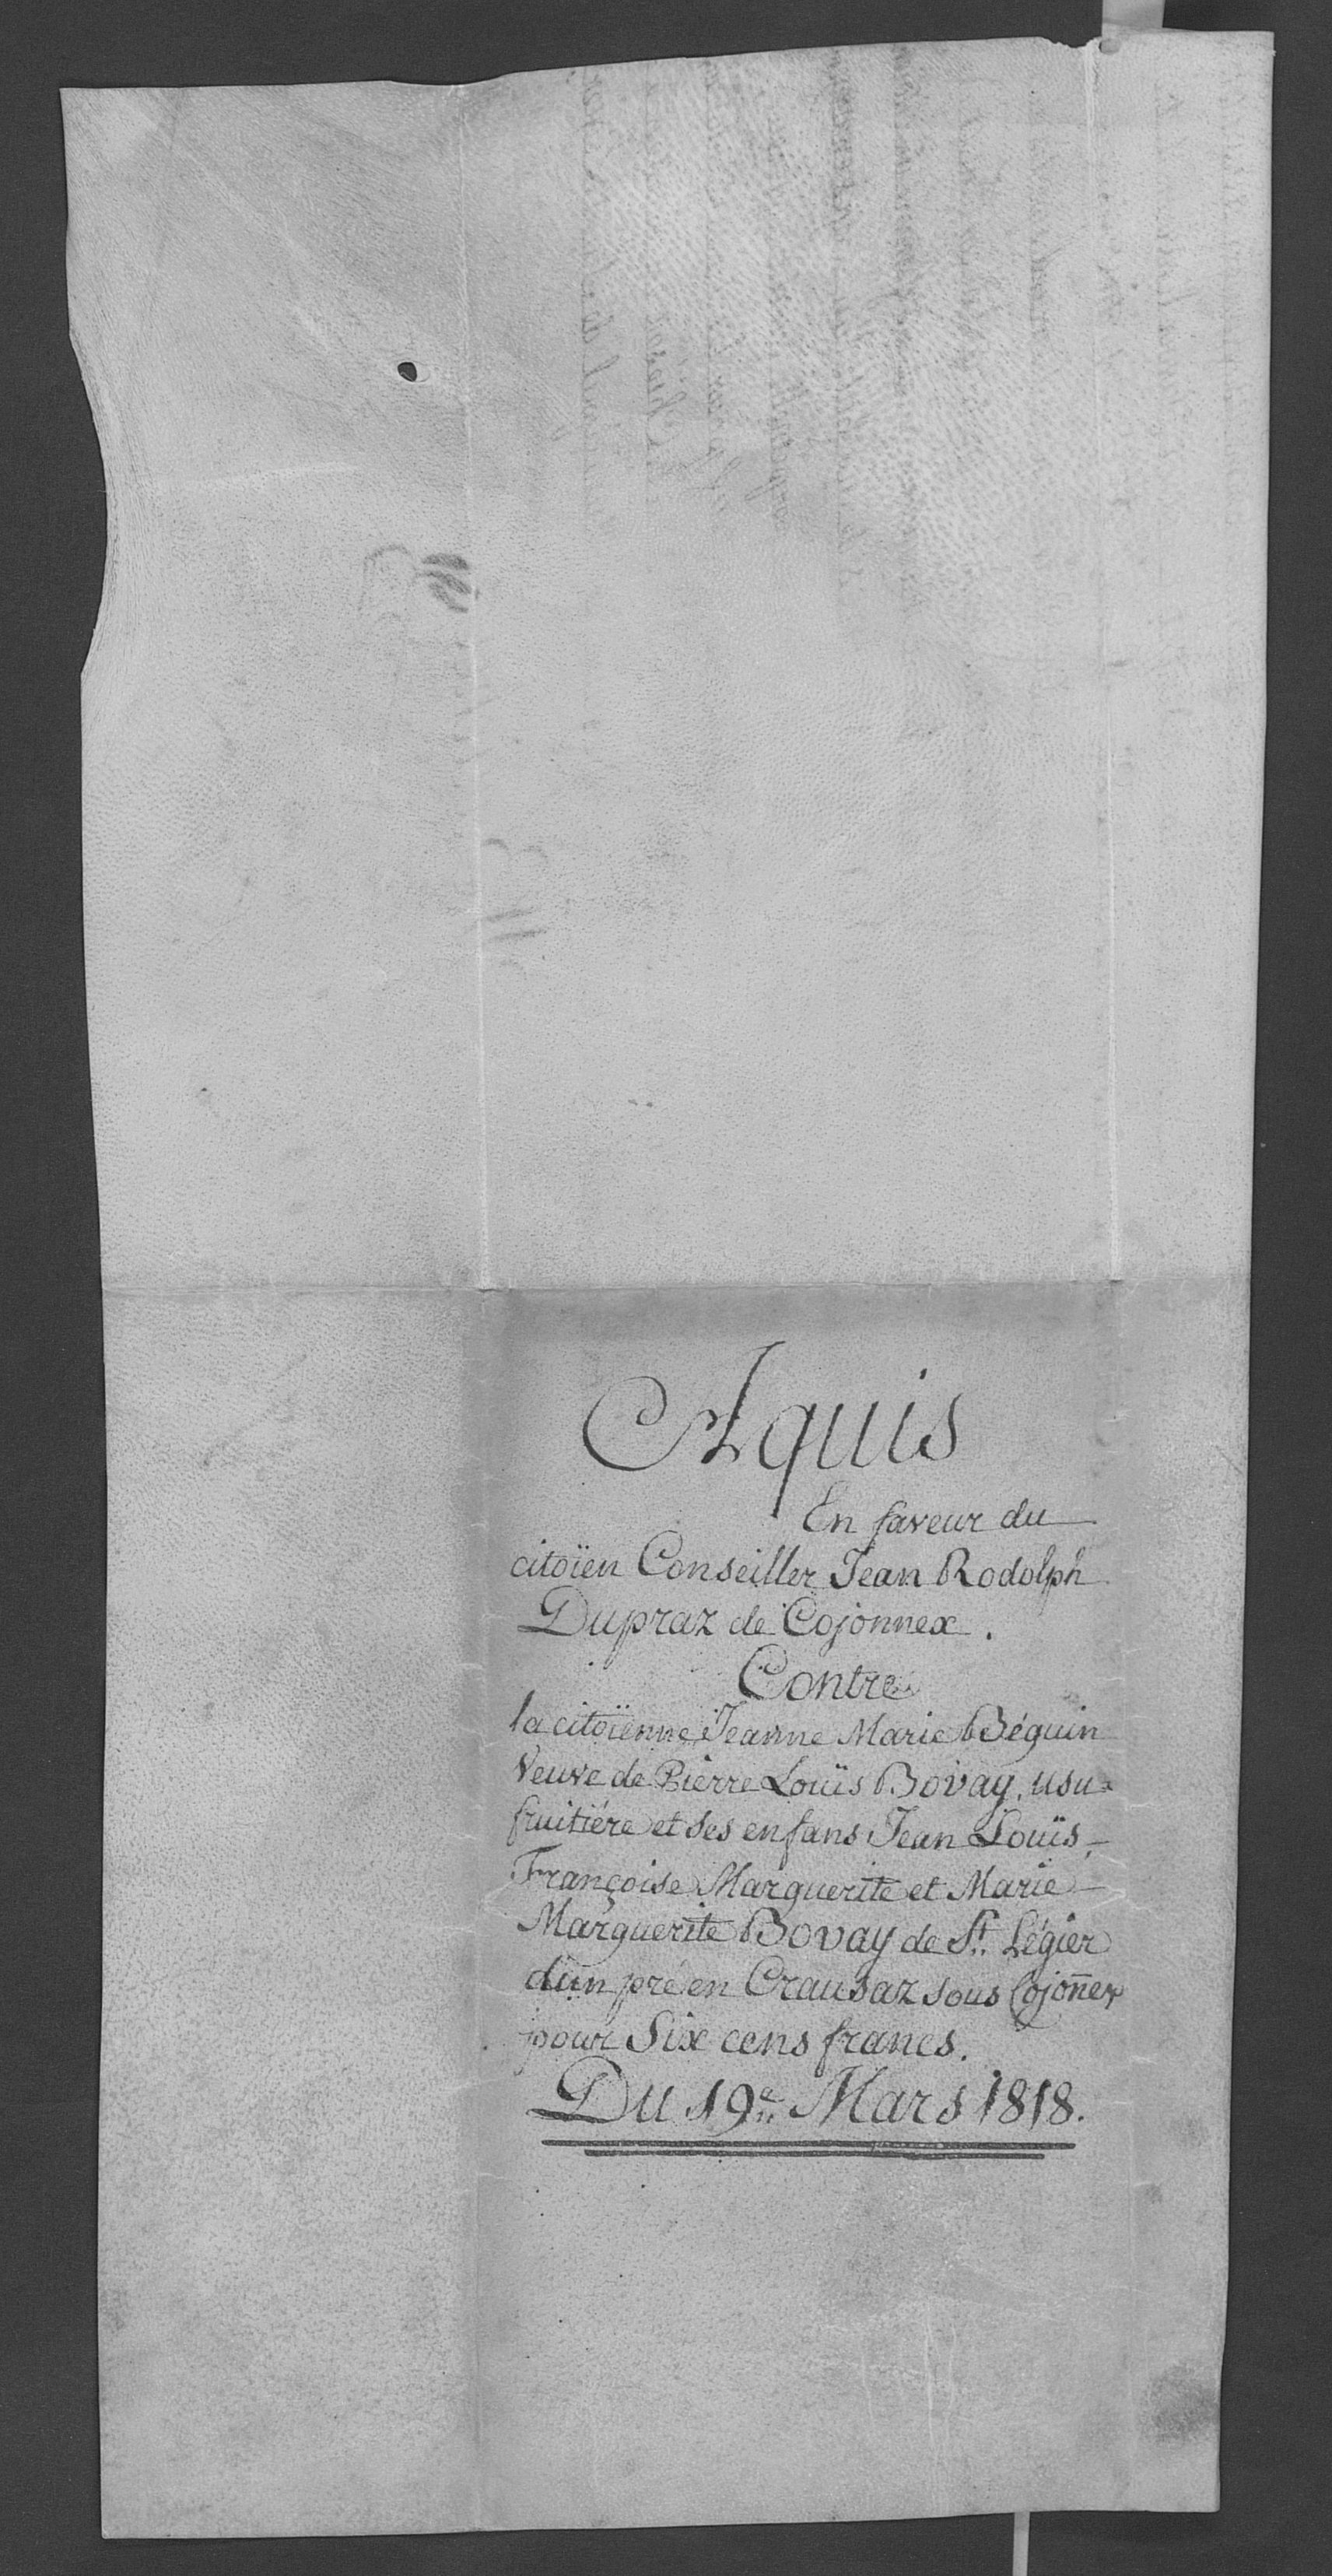 Aquis
En faveur du
citoïen Conseiller Jean Rodolph
Dupraz de Cojonnex.
Contre
la citoïenne Jeanne Marie Béguin
Veuve de Pierre Louïs Bovay, usu=
fruitiére et ses enfans Jean Louïs,
Françoise Marguerite et Marie
Marguerite Bovay de St. Légier
d'un pré en Crausaz sous Cojoñex
pour Six cens francs.
Du 19e. Mars 1818.